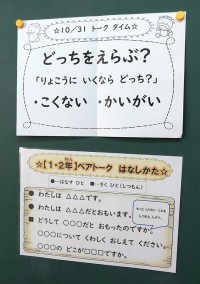 ☆10/31 トーク タイム☆
どっちをえらぶ？
「りょこうに いくなら どっち？」
・こくない ・かいがい
☆【1・2年】ペアトーク はなしかた☆
●…はなす ひと ■…きく ひと(しつもん)
● わたしは △△△です。
● わたしは △△△だとおもいます。
■ どうして ○○○だと おもったのですか。
○○○について くわしく おしえて ください。
○○○の どこが□□□ですか。